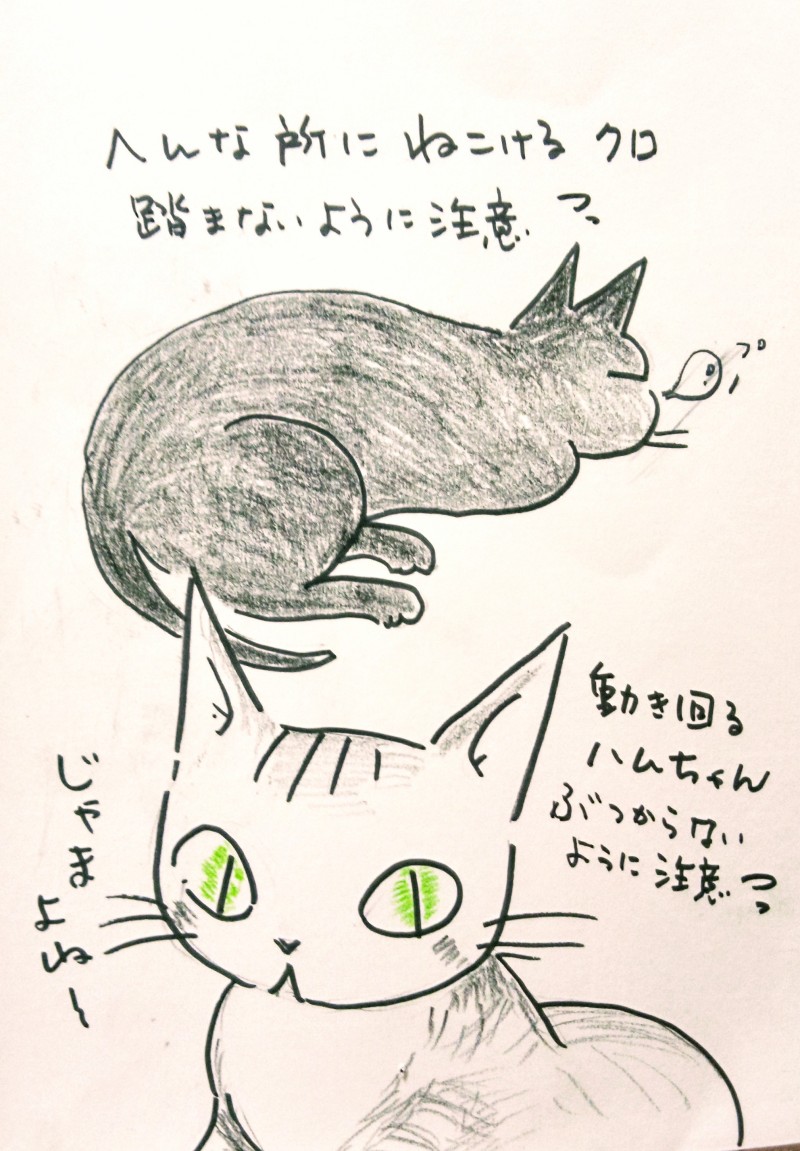 へんな所に ねこける クロ
踏まないように注意っ
プ
動き回る
ハムちゃん
ぶつからない
ように注意っ
じゃま
よね〜